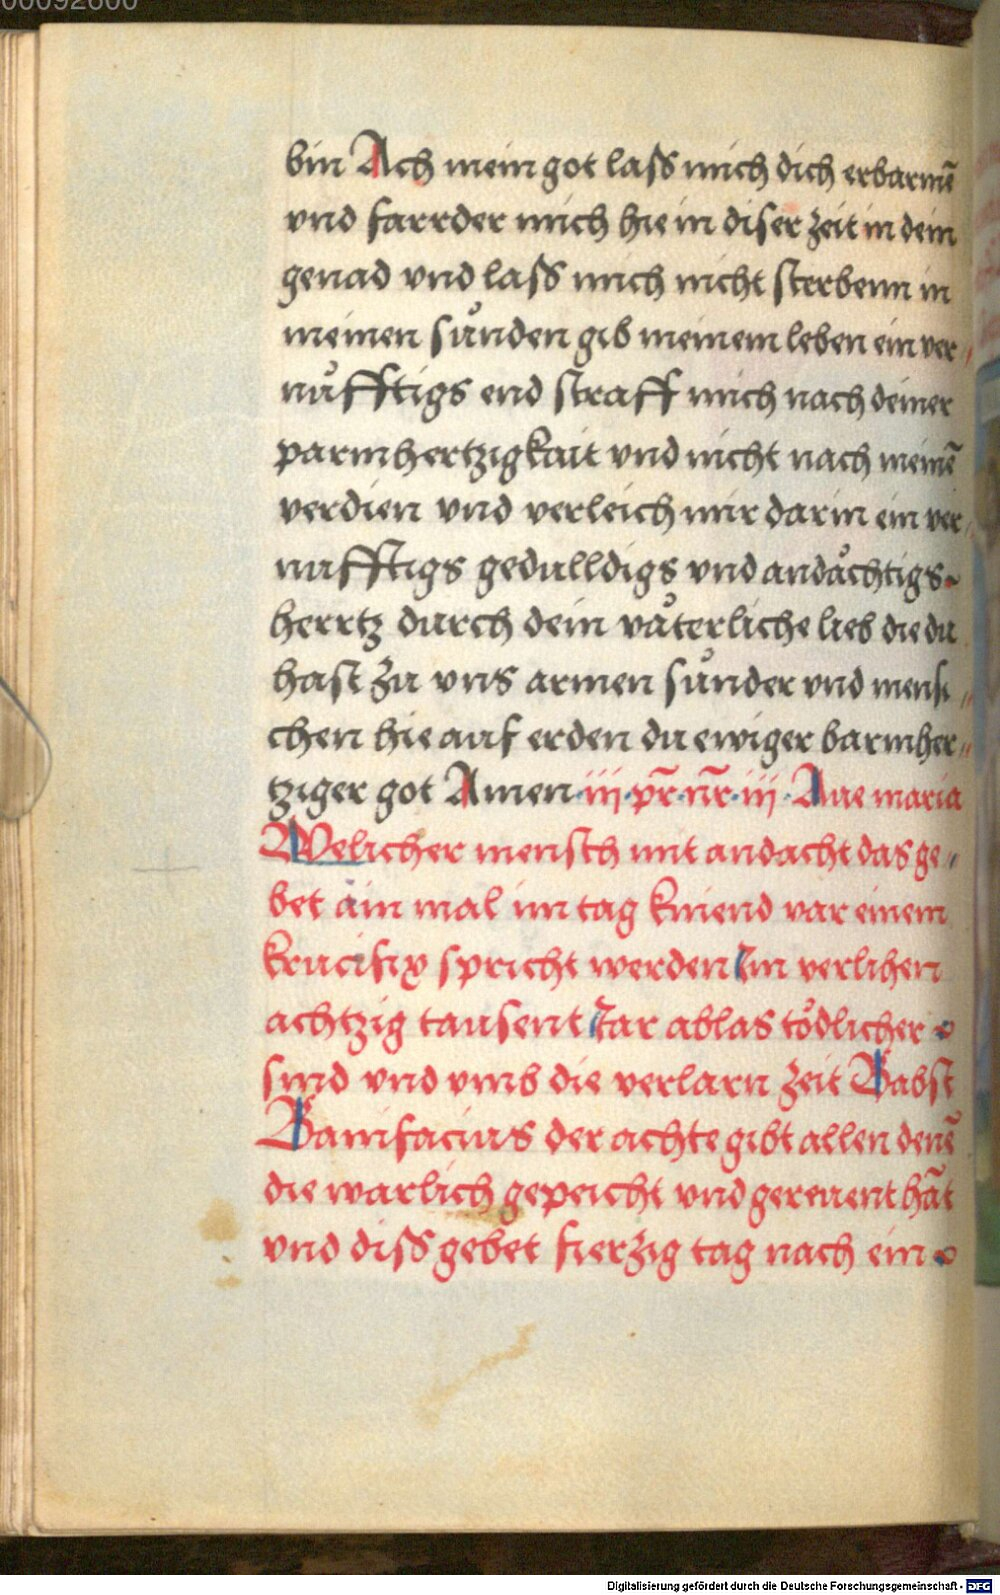 00092600
bin Ach mein got lass mich dich erbarmē
vnd farrder mich hie in diser zeit in dein
genad vnd lass mich nicht sterbenn in
meinen sůnden gib meinem leben ein ver
nůfftigs end straff mich nach deiner
parmhertzigkait vnd nicht nach meinē
verdien vnd verleich mir darin ein ver
nufftigs gedulldigs vnd andåchtigs
herrtz durch dein våterliche lieb die du
hast zu vns armen sůnder vnd mens
chen hie auf erden du ewiger barmher
tziger got Amen iii · pr̄ · nr̄ · iii · Aue maria
Welicher mensch mit andacht das ge
bet ain mal im tag kniend var einem
krucifix spricht werden Im verlihen
achtzig tausent Jar ablas tödlicher
sund vnd vmb die verlarn zeit Babst
Banifacius der achte gibt allen denē
die warlich gepeicht vnd gereuent hāt
vnd diss gebet fierzig tag nach ein
Digitalisierung gefördert durch die Deutsche Forschungsgemeinschaft - DFG